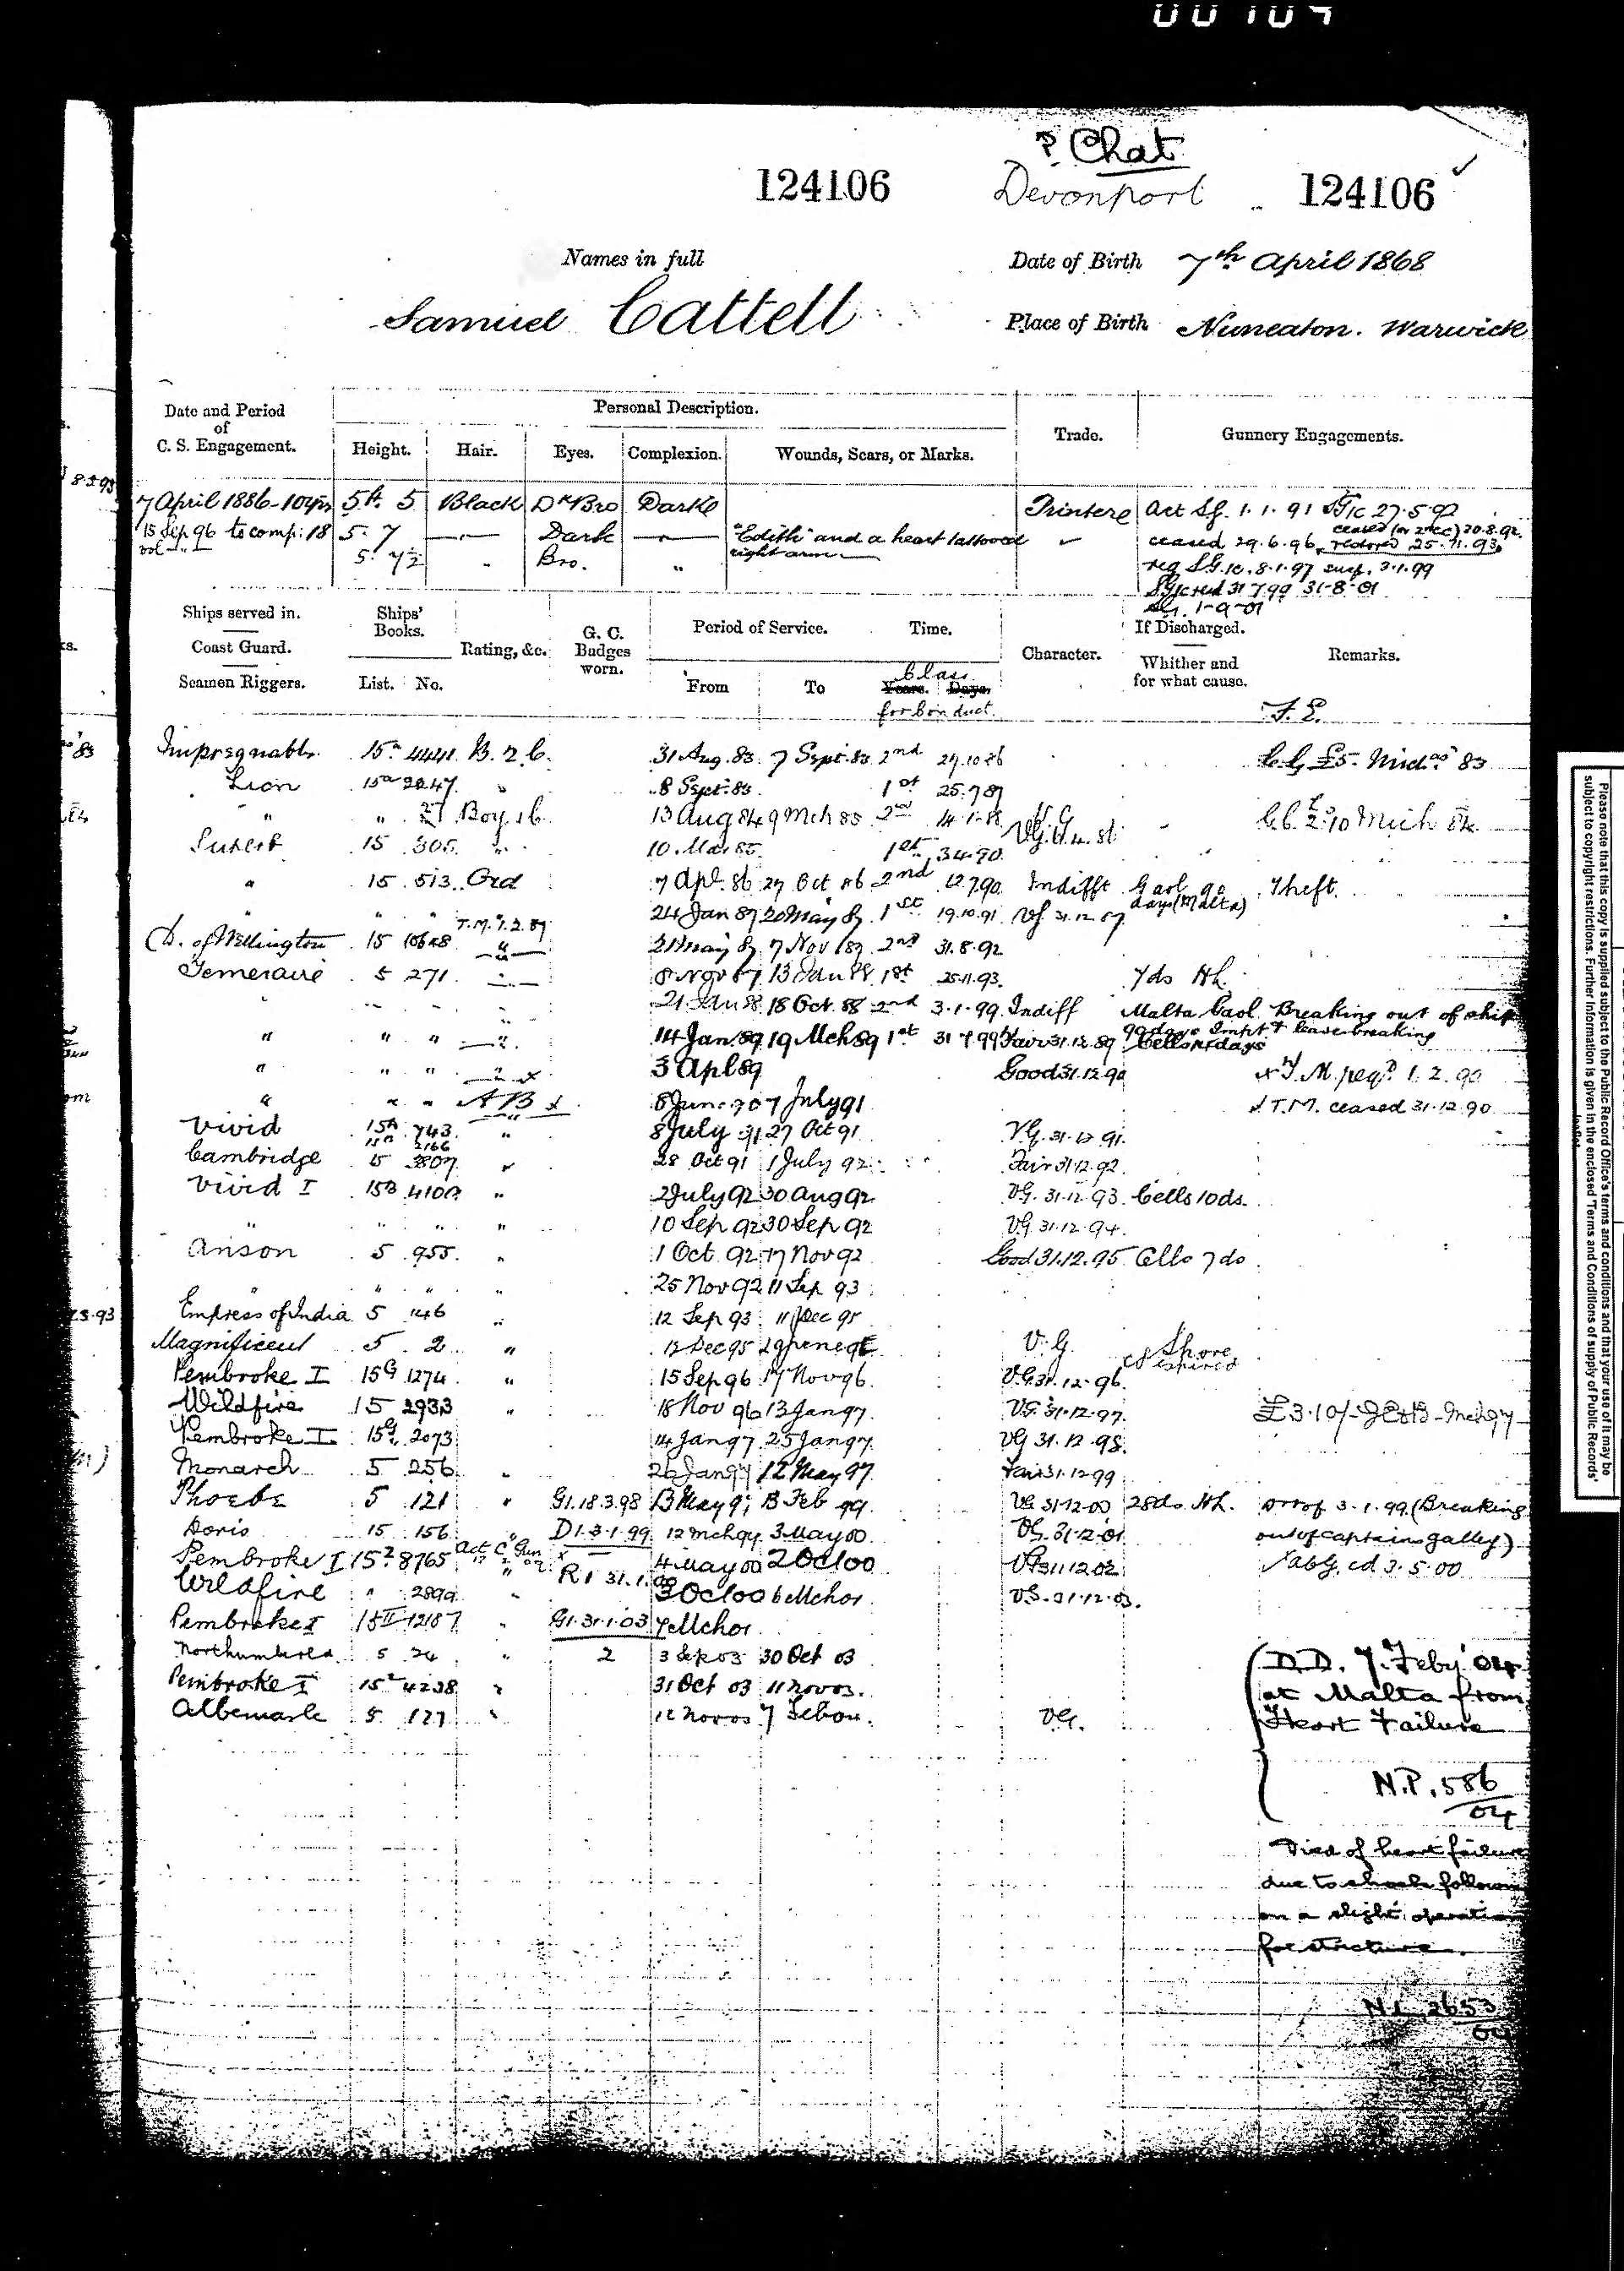 P Chat
124106 Devonport 124106
Names in full
Date of Birth 7th April 1868
Samuel Cattell
Place of Birth Nuneaton. Warwick
Date and Period of C. S. Engagement.
Personal Description.
Height. Hair. Eyes. Complexion. Wounds, Scars, or Marks.
Trade.
Gunnery Engagements.
7 April 1886 - 10 yrs 5 ft. 5 Black Dk Bro Dark Printer Act Sg. 1.1.91 27.5.92
15 Sep 96 to comp: 18 5. 7 Dark "Edith" and a heart tattooed right arm ceased 29.6.96 restored 25.11.93
5. 7½ Bro. " reg S.G. 8.1.97 susp. 3.1.99
31 7 99 31-8-01
1-9-01
Ships served in.
Coast Guard.
Seamen Riggers.
Ships' Books.
List. No.
Rating, &c.
G. C. Badges worn.
Period of Service.
From To
Time.
Years. Days.
Class for Conduct.
Character.
If Discharged.
Whither and for what cause.
Remarks.
Impregnable 15a 4441 B. 2 C. 31 Aug. 83 7 Sept. 83 2nd £5
Lion 15a 2047 " 8 Sept. 83 1st 25.7.89
" " Boy 1 C 13 Aug 84 9 Mch 85 2nd 14.1.88 V.G.
15 305 " 10. Mar 85 1st 3.4.90
" 15 513 Ord 7 Apl. 86 27 Oct 86 2nd 12.7.90 Indifft Gaol 90 days (Malta) Theft.
" " " T.M. 1.2.89 24 Jan 87 20 May 87 1st 19.10.91
D. of Wellington 15 " 21 May 87 7 Nov 87 2nd 31.8.92
Temeraire 5 271 " 8 Nov 87 13 Jan 88 1st 25.11.93 7 ds Hl.
" 21 Jan 88 18 Oct. 88 2nd 3.1.99 Indiff Malta Gaol Breaking out of ship
" " " " 14 Jan 89 19 Mch 89 1st 31 7 99 Fair 31.12.89 90 days Impt & leave breaking
Cells days
" " " " x 3 Apl 89 Good 31.12.90 x T.M. 1.2.90
" " " AB x 8 June 90 7 July 91 x T.M. ceased 31.12.90
Vivid 15A 743 " 8 July 91 27 Oct 91 V.G. 31.12.91.
15a 2166
Cambridge 15 3807 " 28 Oct 91 1 July 92 Fair 31.12.92.
Vivid I 15B " 2 July 92 30 Aug 92 VG. 31.12.93 Cells 10 ds.
" " " " 10 Sep 92 30 Sep 92 V.G. 31.12.94.
Anson 5 955 " 1 Oct. 92 17 Nov 92 Good 31.12.95 Cells 7 ds
" " " " 25 Nov 92 11 Sep 93
Empress of India 5 146 " 12 Sep 93 11 Dec 95
Magnificent 5 2 " 12 Dec 95 V.G. Shore expired
Pembroke I 15G 1274 " 15 Sep 96 17 Nov 96 V.G. 31.12.96.
Wildfire 15 2933 " 18 Nov 96 13 Jan 97. VG. 31.12.97. £3.10/-
Pembroke I 15G 2073 14 Jan 97 25 Jan 97 VG 31.12.98.
Monarch 5 256 " 26 Jan 97 12 May 97 Fair 31.12.99
Phoebe 5 121 " G1.18.3.98 13 May 97 13 Feb 99. VG 31.12.00 28 ds. Hl. 3.1.99. (Breaking
Doris 15 156 " D1.3.1.99 12 Mch 99 3 May 00 VG. 31.12.01 out of captains galley)
Pembroke I 15² 8765 4 May 00 2 Oct 00 VG 31.12.02 3.5.00
Wildfire " " R1 31.1. 3 Oct 00 6 Mch 01 VG. 31.12.03.
Pembroke I 15II 12187 " G1.31.1.03 7 Mch 01
Northumberld. 5 24 " 2 3 Sep 03 30 Oct 03
Pembroke I 15² 4238 " 31 Oct 03 11 Nov 03.
Albemarle 5 127 " 12 Nov 03 7 Feb 04. VG.
D.D. 7. Feby 04
at Malta from
Heart Failure
N.P. 586
04
Died of heart failure
due to shock
on a slight operation
for stricture.
N.L. 2653
04
Please note that this copy is supplied subject to the Public Record Office's terms and conditions and that your use of it may be
subject to copyright restrictions. Further information is given in the enclosed 'Terms and Conditions of supply of Public Records'